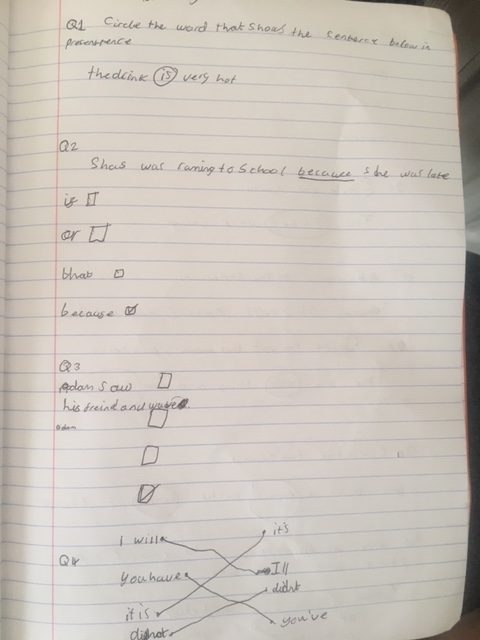 Q1 Circle the word that shows the sentence below in
presentence
the drink is very hot
Q2
Shas was runing to School because she was late
if
or
that
because
Q3
Adam Saw
his freind and waved.
Adam
Q4
I will it's
you have I'll
it is didnt
didnot you've